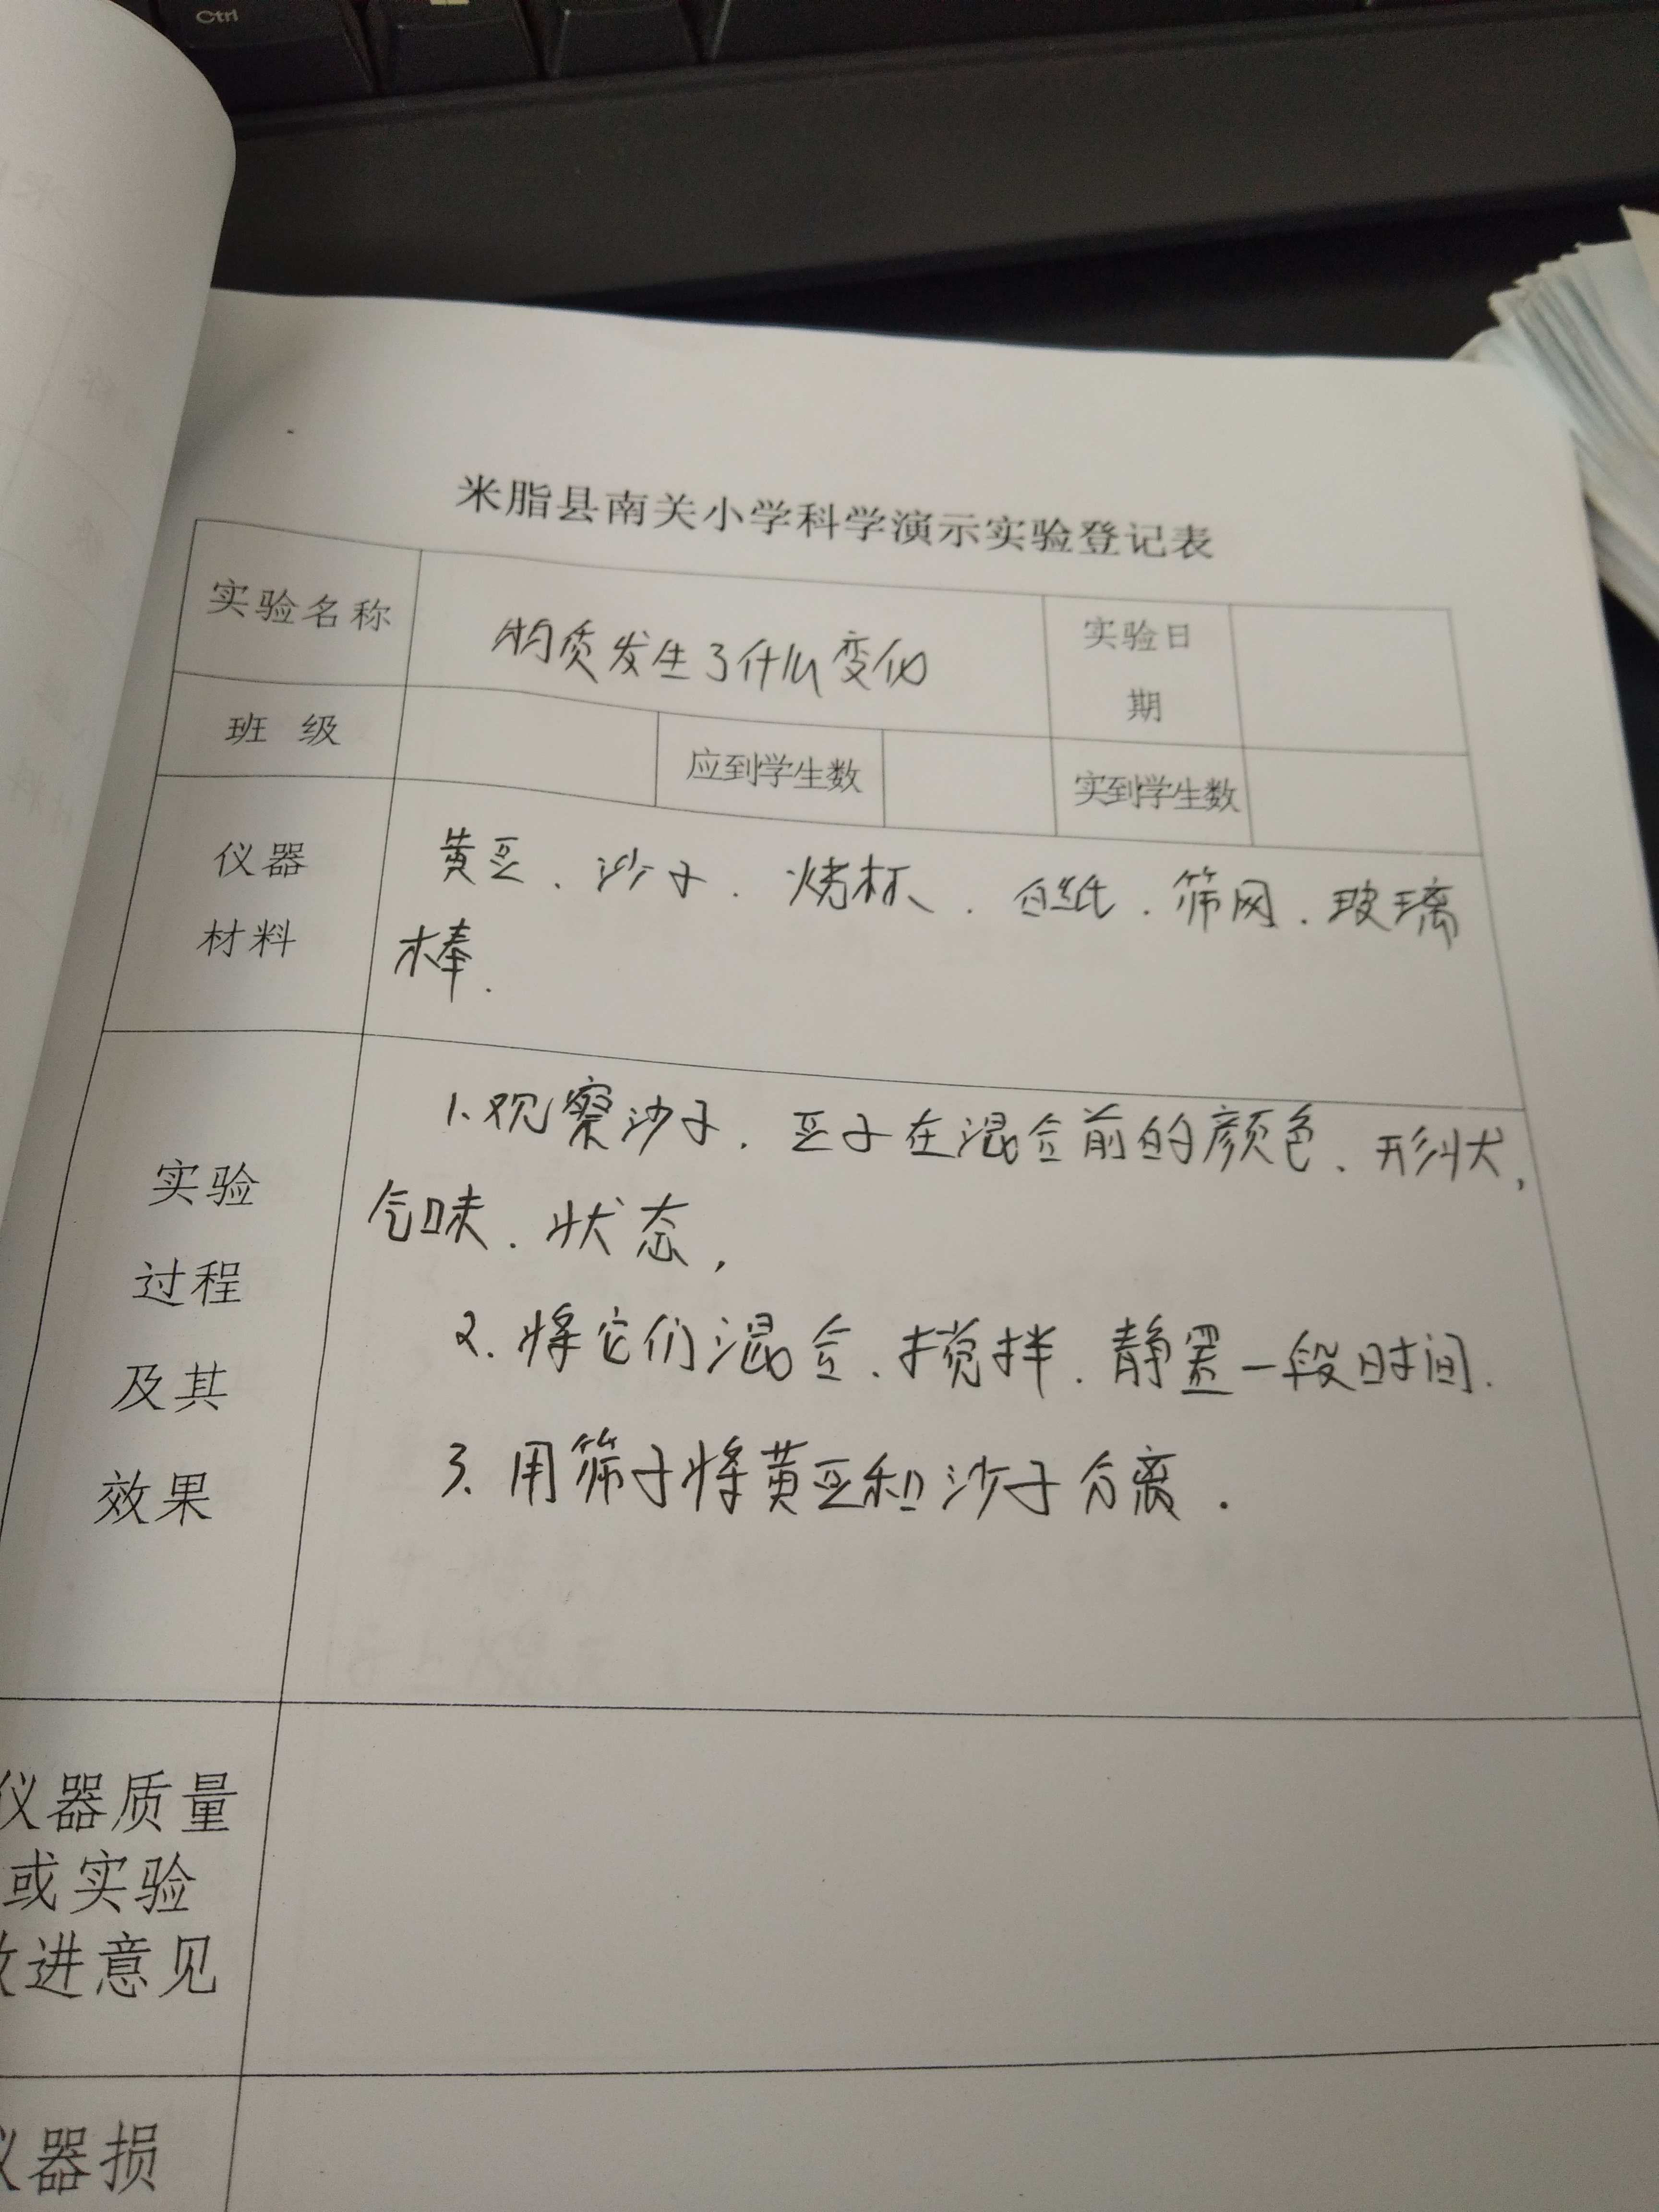 Ctrl
米脂县南关小学科学演示实验登记表
实验名称
物质发生了什么变化
实验日
期
班 级
应到学生数
实到学生数
仪器
材料
黄豆、沙子、烧杯、白纸、筛网、玻璃
棒.
实验
过程
及其
效果
1.观察沙子、豆子在混合前的颜色、形状,
气味、状态,
2.将它们混合、搅拌、静置一段时间.
3.用筛子将黄豆和沙子分离.
仪器质量
或实验
改进意见
仪器损